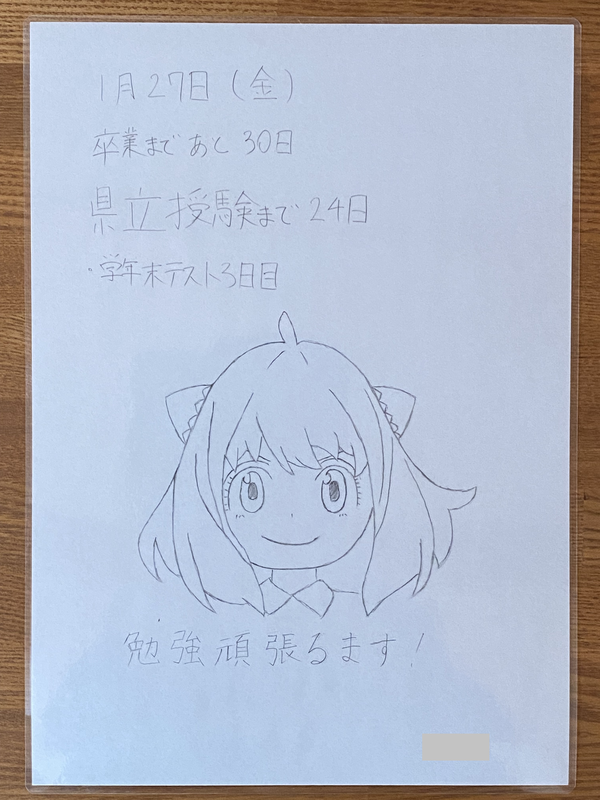 1月27日(金)
卒業まであと30日
県立授験まで24日
・学年末テスト3日目
勉強頑張るます!